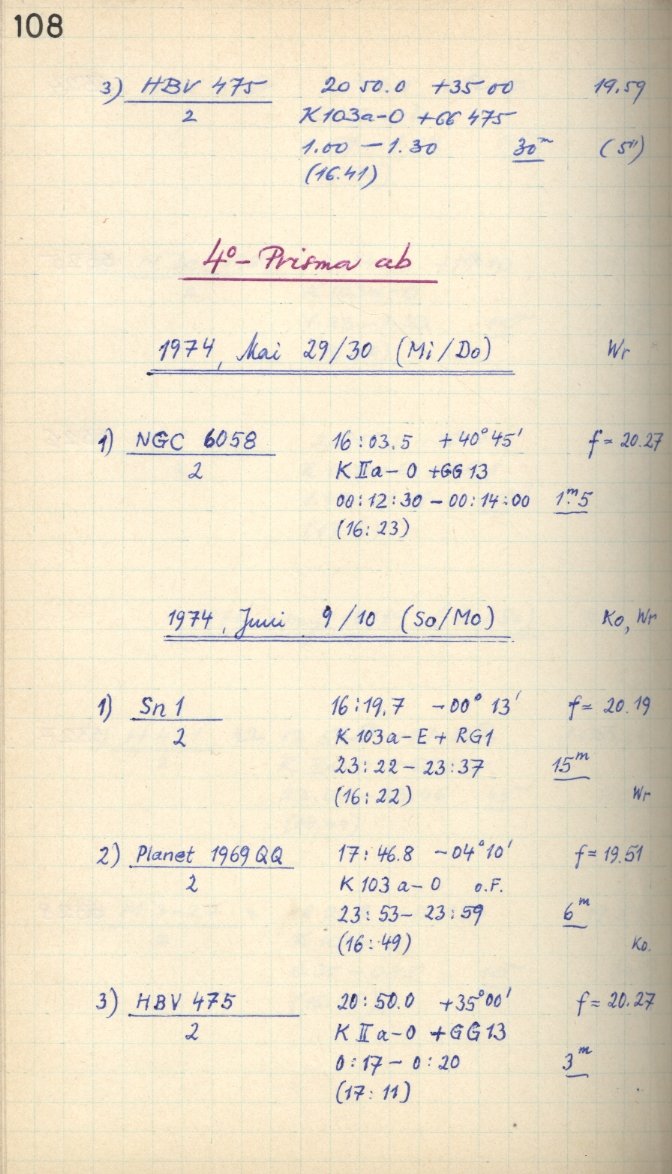 108
3) HBV 475 20 50.0 +35 00 19.59
2 K 103a-O +GG 475
1.00 - 1.30 30ᵐ (5")
(16.41)
4°- Prisma ab
1974, Mai 29/30 (Mi/Do) Wr
1) NGC 6058 16:03.5 +40°45' f = 20.27
2 K IIa-O +GG 13
00:12:30 - 00:14:00 1ᵐ.5
(16:23)
1974, Juni 9/10 (So/Mo) Ko, Wr
1) Sn 1 16:19,7 -00° 13' f = 20.19
2 K 103a-E + RG1
23:22 - 23:37 15ᵐ
(16:22) Wr
2) Planet 1969 QQ 17:46.8 -04°10' f = 19.51
2 K 103 a-O o.F.
23:53 - 23:59 6ᵐ
(16:49) Ko.
3) HBV 475 20:50.0 +35°00' f = 20.27
2 K II a-O +GG13
0:17 - 0:20 3ᵐ
(17:11)